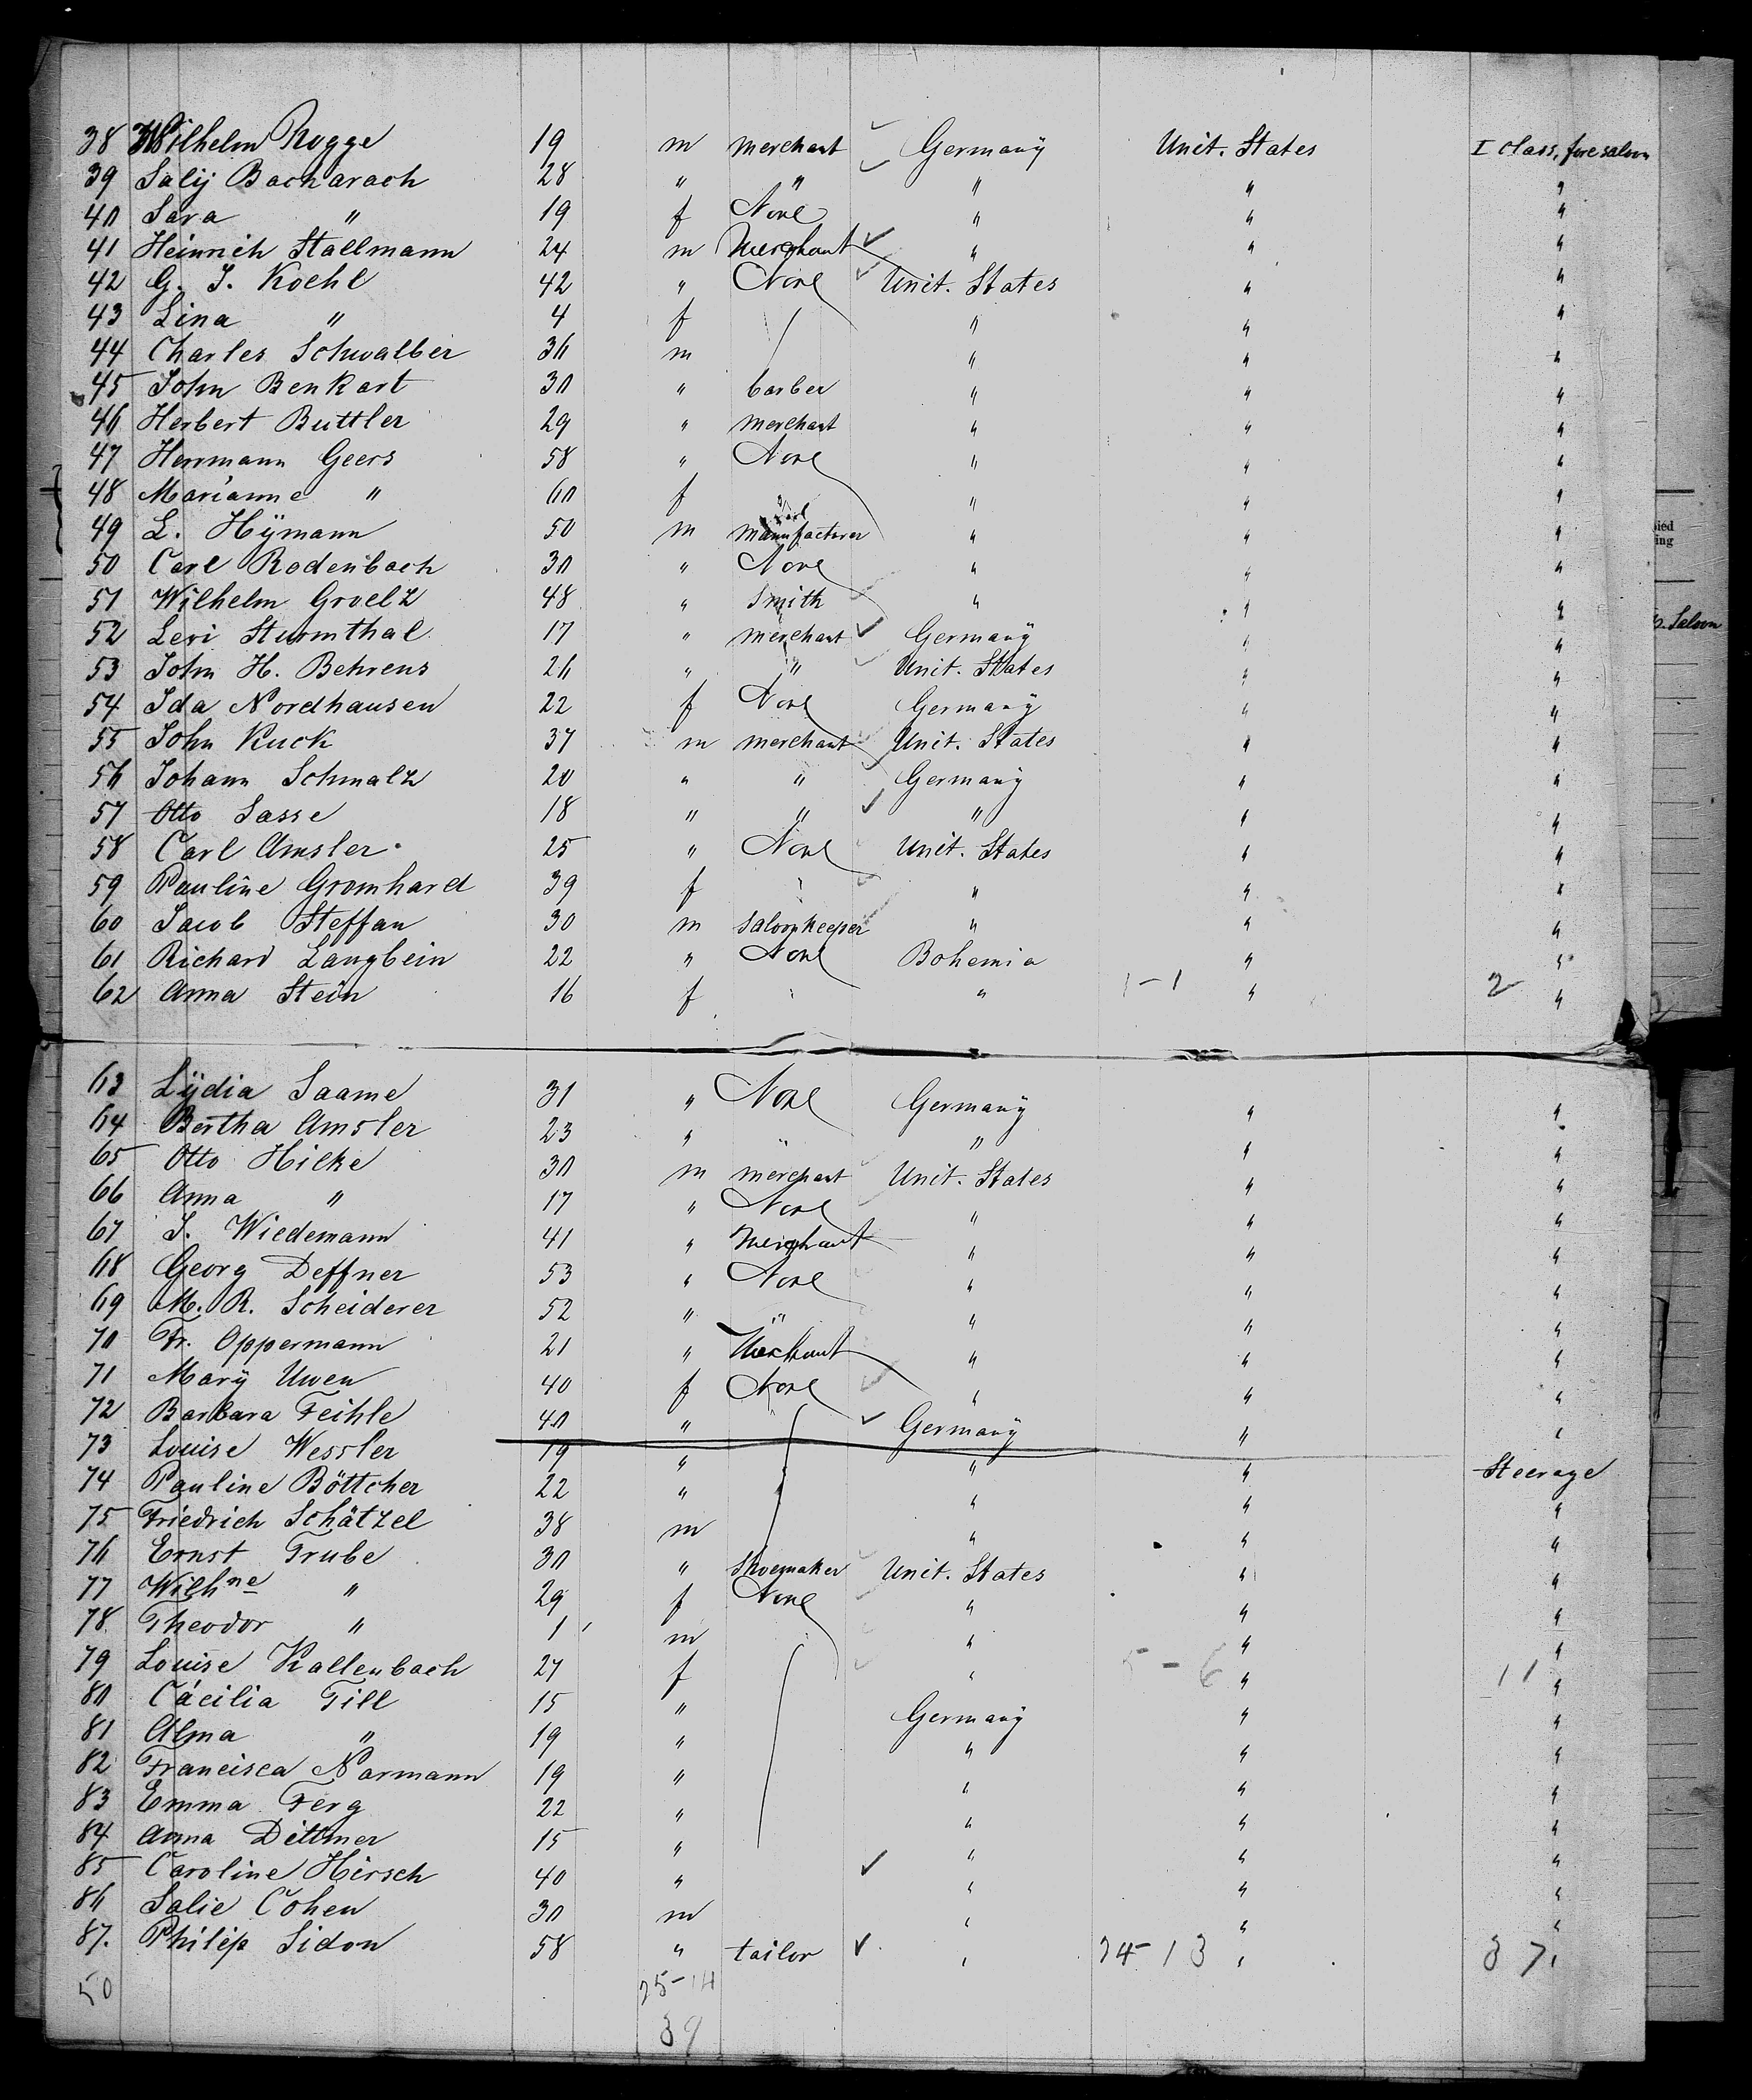 38 Wilhelm Rogge 19 m merchant Germany Unit. States I class, fore saloon
39 Saly Bacharach 28 " " " " "
40 Sara " 19 f None " " "
41 Heinrich Stallmann 24 m Merchant " " "
42 G. J. Koehl 42 " None Unit. States " "
43 Lina " 4 f " " "
44 Charles Schwalber 36 m " " "
45 John Benkart 30 " barber " " "
46 Herbert Buttler 29 " merchant " " "
47 Herrmann Geers 58 " None " " "
48 Marianne " 60 f " " "
49 L. Hÿmann 50 m manufacturer " " "
50 Carl Rodenbach 30 " None " " "
51 Wilhelm Groelz 48 " Smith " " "
52 Levi Sturmthal 17 " merchant Germany " "
53 John H. Behrens 26 " " Unit. States " "
54 Ida Nordhausen 22 f None Germany " "
55 John Kuck 37 m merchant Unit. States " "
56 Johann Schmalz 20 " " Germany " "
57 Otto Sasse 18 " " " " "
58 Carl Amsler 25 " None Unit. States " "
59 Pauline Gromhard 39 f " " " "
60 Jacob Steffan 30 m saloonkeeper " " "
61 Richard Langbein 22 " None Bohemia " "
62 Anna Stein 16 f " " 1-1 " 2 "
63 Lÿdia Saame 31 " None Germany " "
64 Bertha Amsler 23 " " " " "
65 Otto Hilke 30 m merchant Unit. States " "
66 Anna " 17 " None " " "
67 J. Wiedemann 41 " Merchant " " "
68 Georg Deffner 53 " None " " "
69 M. R. Scheiderer 52 " " " " "
70 Fr. Oppermann 21 " Merchant " " "
71 Marÿ Uwen 40 f None " " "
72 Barbara Feihle 40 " " Germany " "
73 Louise Wessler 19 " " " Steerage
74 Pauline Böttcher 22 " " " "
75 Friedrich Schätzel 38 m " " "
76 Ernst Trube 30 " Shoemaker Unit. States " "
77 Wilhne " 29 f None " " "
78 Theodor " 1 m " " "
79 Louise Kallenbach 27 f " 5-6 " 11 "
80 Cäcilia Till 15 " Germany " "
81 Alma " 19 " " " "
82 Francisca Normann 19 " " " "
83 Emma Ferg 22 " " " "
84 Anna Dittmer 15 " " " "
85 Caroline Hirsch 40 " " " "
86 Salie Cohen 30 m " " "
87. Philip Sidon 58 " tailor " 24-13 " 37 "
50 25-14
39